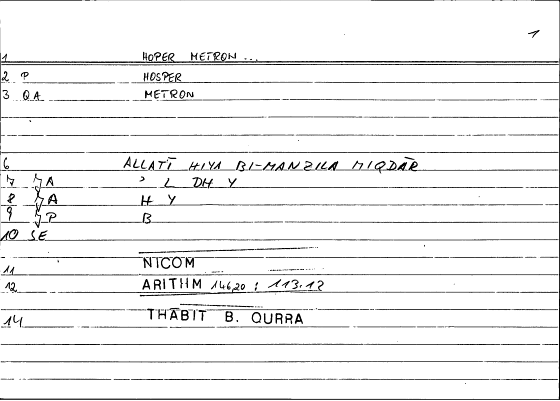 1
1 HOPER METRON ...
2 P HOSPER
3 QA METRON
6 ALLATĪ HIYA BI-MANZILA MIQDĀR
7 A ' L DH Y
8 A H Y
9 P B
10 SE
11 NICOM
12 ARITHM 146,20 ; 113.12
14 THĀBIT B. QURRA